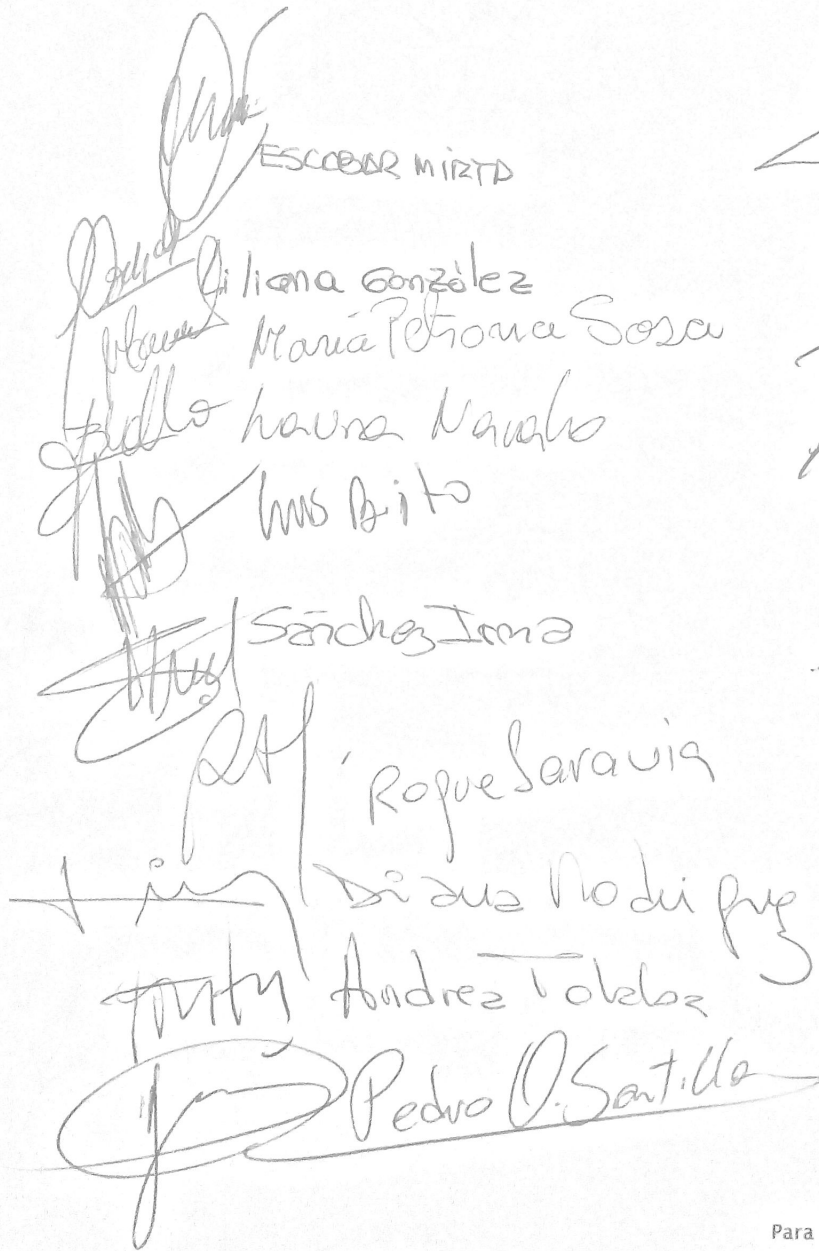 ESCOBAR MIRTA
Liliana González
María Petrona Sosa
Laura Navalo
Luis Brito
Sánchez Irma
Roque Saravia
Diana Rodriguez
Andrea Tolaba
Pedro O. Santillan
Para